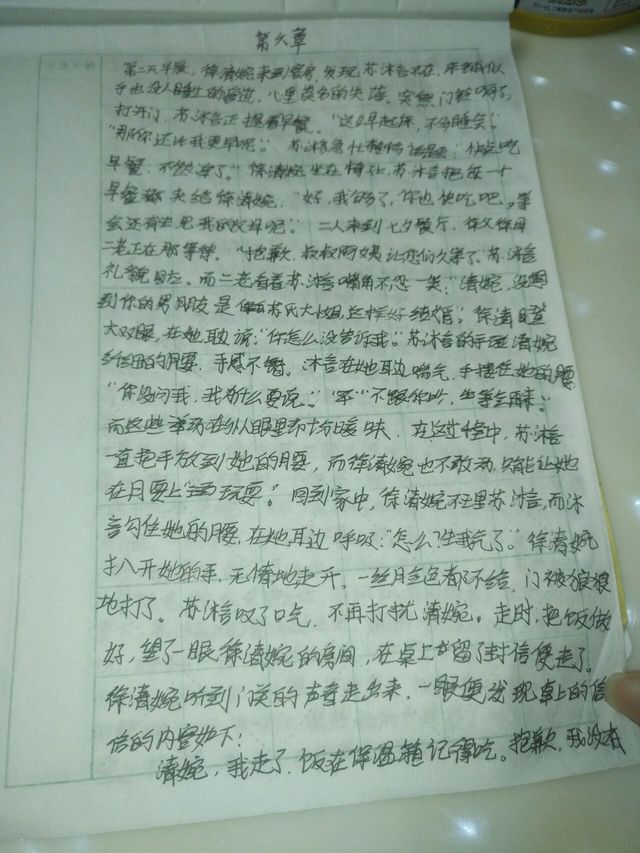 第六章
第二天早晨，徐清婉来到客房，发现苏沐言不在，床铺似
乎也没人睡过的痕迹，心里莫名的失落。突然门铃响了，
打开门，苏沐言正提着早餐。“这么早起床，不多睡会。”
“那你还比我更早呢。”苏沐言急忙转移话题：“快点吃
早餐，不然凉了。”徐清婉坐在椅上，苏沐言把每一个
早餐都夹给徐清婉，“好，我够了，你也快吃吧。等
会还有去见我的父母呢。”二人来到七夕餐厅，徐父徐母
二老正在那等候。“抱歉，叔叔阿姨让您们久等了。”苏沐言
礼貌。而二老看着苏沐言嘴角不忍一笑：“清婉，没想
到你的男朋友是苏氏大小姐，这样好结婚。”徐清瞪
大双眼，在她耳边说：“你怎么没告诉我。”苏沐言的手清婉
纤细的腰，手感不错。沐言在她耳边喘气，手搂住她的腰
“你没问我，我为什么要说。”“不跟你吵，坐等会再来。”
而这些举动在外人眼里都十分暧昧，在这过程中，苏沐言
一直把手放到她的腰，而徐清婉也不敢动，只能让她
在腰上“玩耍”。回到家中，徐清婉不理苏沐言，而沐
言勾住她的腰，在她耳边呼吸：“怎么？生我气了。”徐清婉
扒开她的手，无情地走开，一丝脸色都不给，门被狠狠
地打了。苏沐言叹了口气，不再打扰清婉。走时，把饭做
好，望了一眼徐清婉的房间，在桌上留了封信便走了。
徐清婉听到门关的声音走出来，一眼便发现桌上的信
信的内容如下：
清婉，我走了，饭在保温箱记得吃。抱歉，我没有